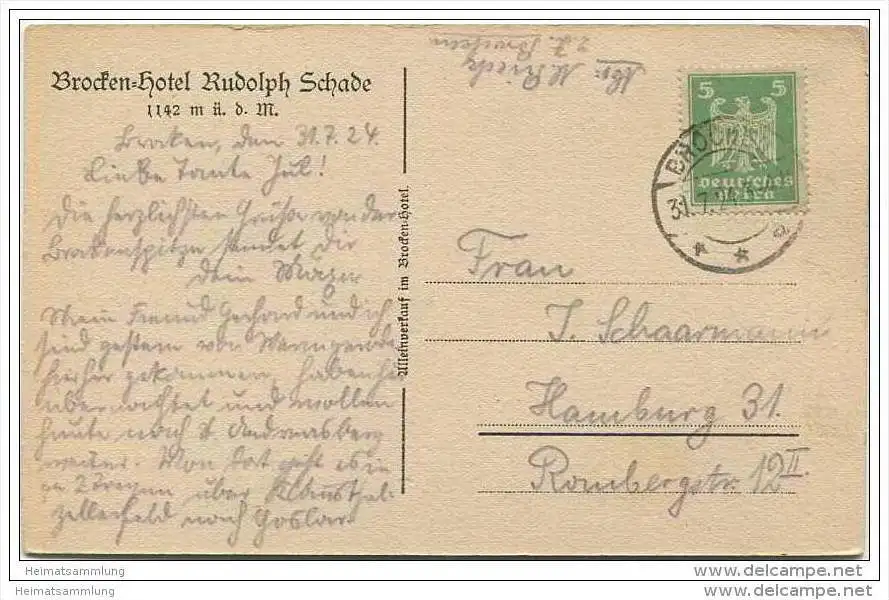 Brocken-Hotel Rudolph Schade
1142 m ü. d. M.
Brocken, den 31.7.24.
Liebe Tante Jul!
Die herzlichsten Grüße von der
Brockenspitze sendet Dir
Dein
Mein Freund Gerhard und ich
sind gestern von Wernigerode
hierher gekommen, haben hier
übernachtet und wollen
heute nach St. Andreasberg
weiter. Von dort geht es in
2 Tagen über Klausthal-
Zellerfeld nach Goslar.
Alleinverkauf im Brocken-Hotel.
Abs:
z. Z. Brocken
5 5
Deutsches
Reich
BROCKEN
31.7.24
Frau
J. Schaarmann
Hamburg 31.
Rombergstr. 12 II.
Heimatsammlung
Heimatsammlung
www.delcampe.net
www.delcampe.net